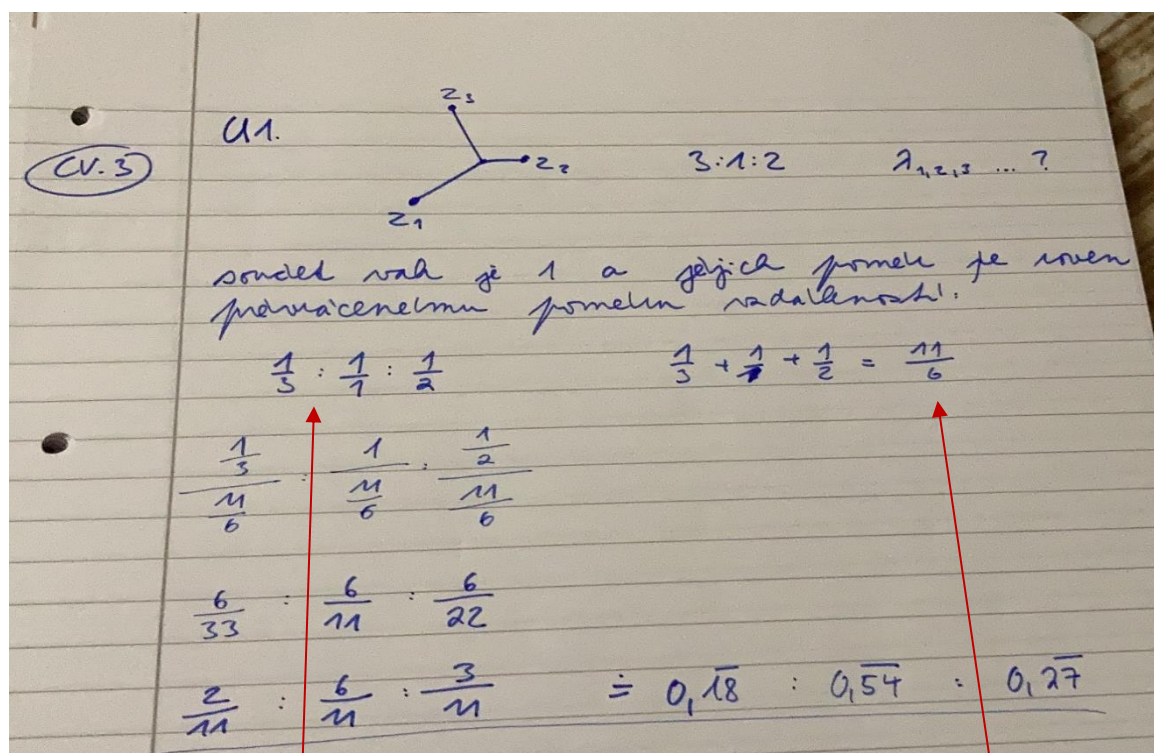 CV.3
Ú1.
z₃
z₂
z₁
3:1:2
λ₁,₂,₃ ... ?
součet vah je 1 a jejich poměr je roven
převrácenému poměru vzdáleností.
1/3 : 1/1 : 1/2
1/3 + 1/1 + 1/2 = 11/6
(1/3)/(11/6) : 1/(11/6) : (1/2)/(11/6)
6/33 : 6/11 : 6/22
2/11 : 6/11 : 3/11 ≐ 0,1̅8̅ : 0,5̅4̅ : 0,2̅7̅